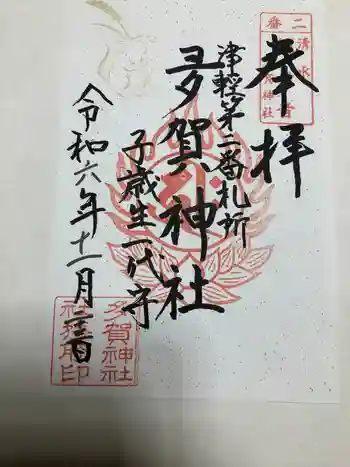 奉拝
津軽第二番札所
多賀神社
子歳生一代守
令和六年十一月二十三日
二番
清水
多賀神社
社務所印